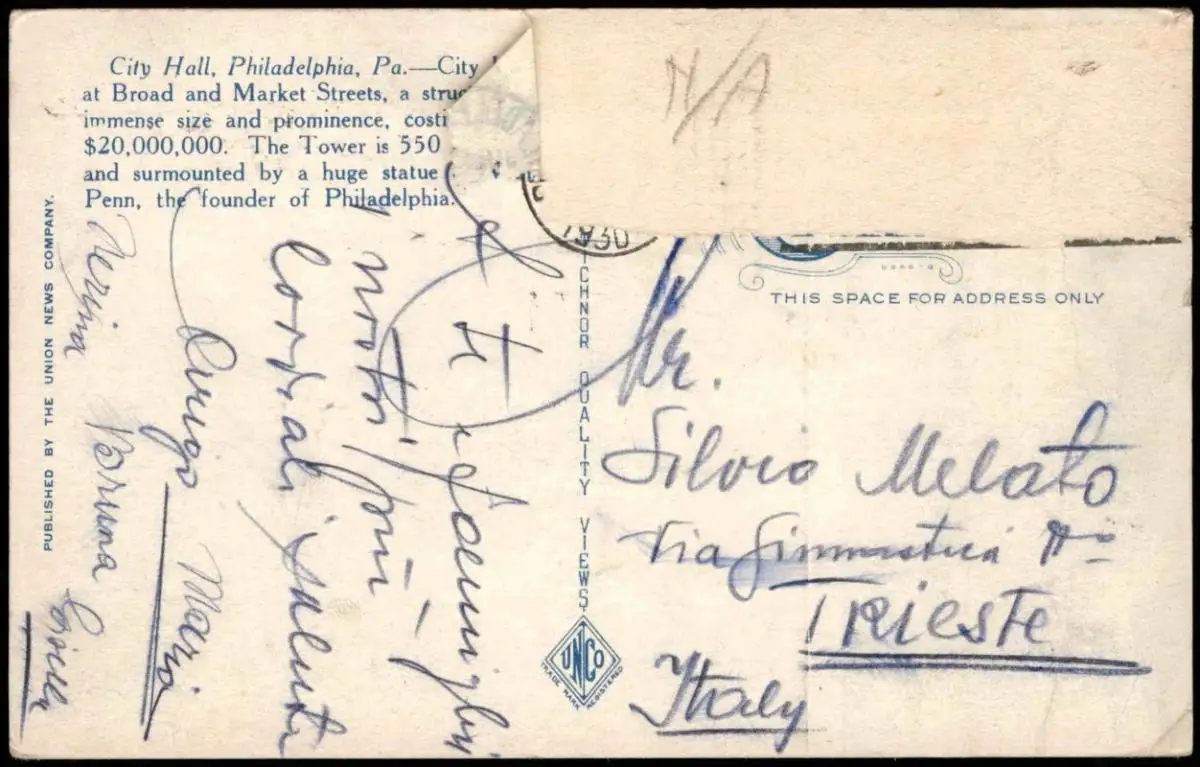 City Hall, Philadelphia, Pa.—City
at Broad and Market Streets, a struc
immense size and prominence, costi
$20,000,000. The Tower is 550
and surmounted by a huge statue
Penn, the founder of Philadelphia.
PUBLISHED BY THE UNION NEWS COMPANY.
N/A
1930
THIS SPACE FOR ADDRESS ONLY
ICHNOR QUALITY VIEWS
UNCO
TRADE MARK REGISTERED
& te e famiglia
i nostri più
cordiali saluti
Arrigo Maria
Nerina Bruna
Mr.
Silvio Melato
Via Ginnastica
TRIESTE
Italy